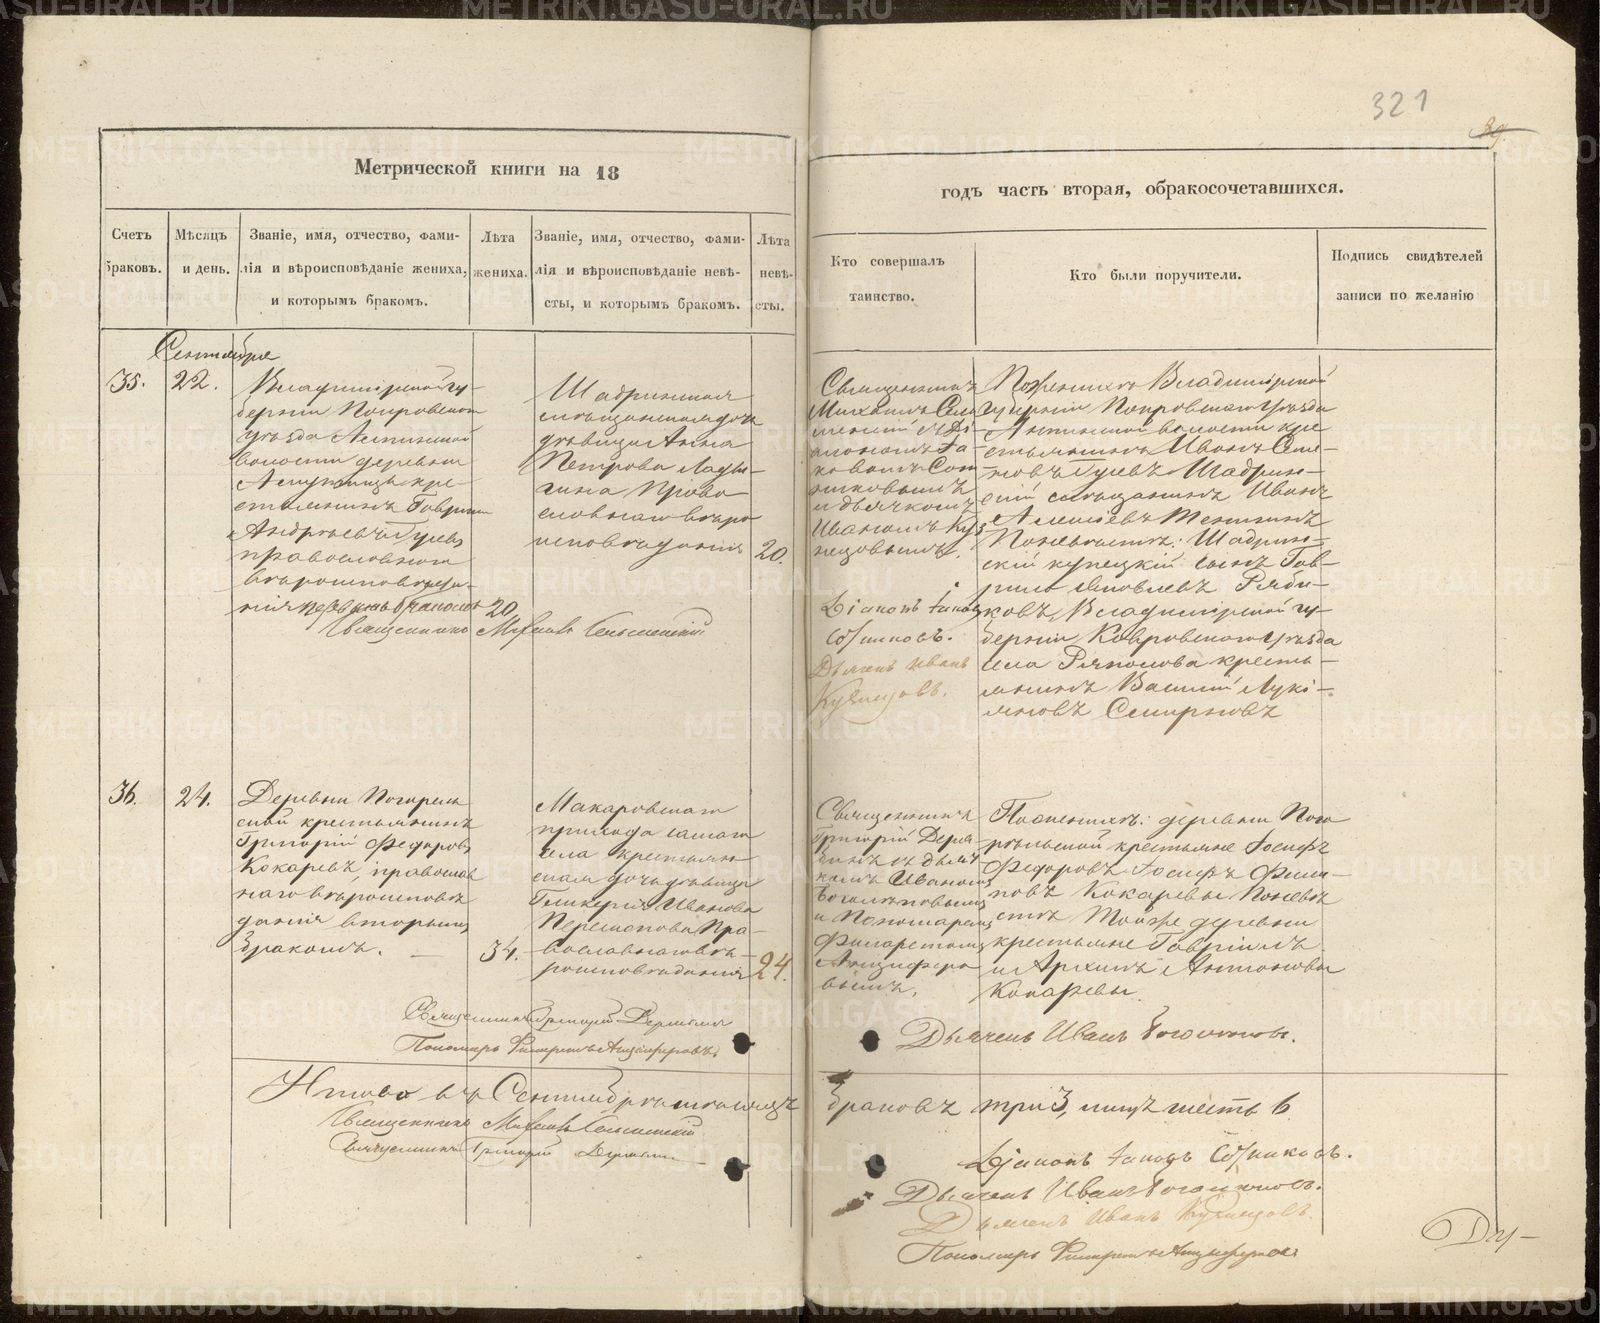 321
Метрической книги на 18
годъ часть вторая, обракосочетавшихся.
Счетъ браковъ.
Мѣсяцъ и день.
Званіе, имя, отчество, фами-
лія и вѣроисповѣданіе жениха,
и которымъ бракомъ.
Лѣта жениха.
Званіе, имя, отчество, фами-
лія и вѣроисповѣданіе невѣ-
сты, и которымъ бракомъ.
Лѣта невѣ-
сты.
Кто совершалъ
таинство.
Кто были поручители.
Подпись свидѣтелей
записи по желанію
Сентября
35.
22.
Владимірской гу-
берніи Покровскаго
уѣзда
волости деревни
кре-
стьянинъ Гаврилъ
Андреевъ Гусевъ
православнаго
вѣроисповѣда-
нія первымъ бракомъ
20
Шадринская
мѣщанская дочь
дѣвица Анна
Петрова Лады-
гина право-
славнаго вѣро
исповѣданія
20.
Священникъ Михаилъ
Священникъ
Михаилъ
съ Ді-
акономъ Іа-
ковомъ Сот-
никовымъ
и дьячкомъ
Иваномъ Куз
нецовымъ.
Діаконъ Іаковъ
Сотниковъ.
Дьячекъ Иванъ
Кузнецовъ.
По женихѣ Владимірской
губерніи Покровскаго уѣзда
волости кре
стьянинъ Иванъ Семе-
новъ Гусевъ Шадрин-
скій мѣщанинъ Иванъ
Алексѣевъ
По невѣстѣ: Шадрин-
скій купецкій сынъ Гав-
рило Яковлевъ Ряби-
ковъ, Владимірской гу-
берніи Ковровскаго уѣзда
села Ряполова кресть-
янинъ Василій Лукі-
яновъ Смирновъ
36.
24.
Деревни Погорѣль
ской крестьянинъ
Григорій Федоровъ
Кокаревъ, православ
наго вѣроисповѣ
данія вторымъ
бракомъ.
34.
Макаровскаго
прихода самаго
села крестьян
ская дочь дѣвица
Гликерія Иванова
Пра-
вославнаго вѣ-
роисповѣданія
24.
Священникъ
Григорій
съ дьяч
комъ Иваномъ
Боголѣповымъ
и Пономаремъ
Филаретомъ
Анциферо
вымъ.
По женихѣ: деревни Пого
рѣльской крестьяне Іосифъ
Федоровъ Іосифъ Фили-
повъ Кокаревы По невѣ
стѣ той же деревни
крестьяне Гавріилъ
и Архипъ Антоновы
Кокаревы.
Священникъ Григорій
Пономарь Филаретъ Анциферовъ.
Дьячекъ Иванъ
Итого въ Сентябрѣ мѣсяцѣ
браковъ три 3, лицъ шесть 6
Священникъ Михаилъ
Священникъ Григорій
Діаконъ Іаковъ Сотниковъ.
Дьячекъ Иванъ
Дьячекъ Иванъ Кузнецовъ.
Пономарь Филаретъ Анциферовъ
METRIKI.GASO-URAL.RU